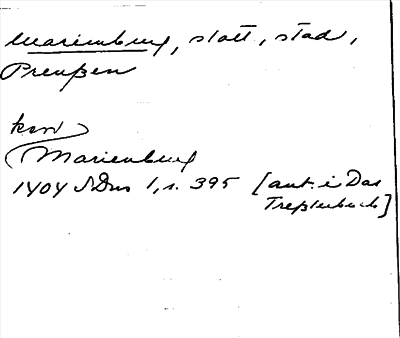 Marienburg, slott, stad,
Preußen
Marienburg
1404 SDns 1, s. 395 [ant. i Das
Tresslerbuch]